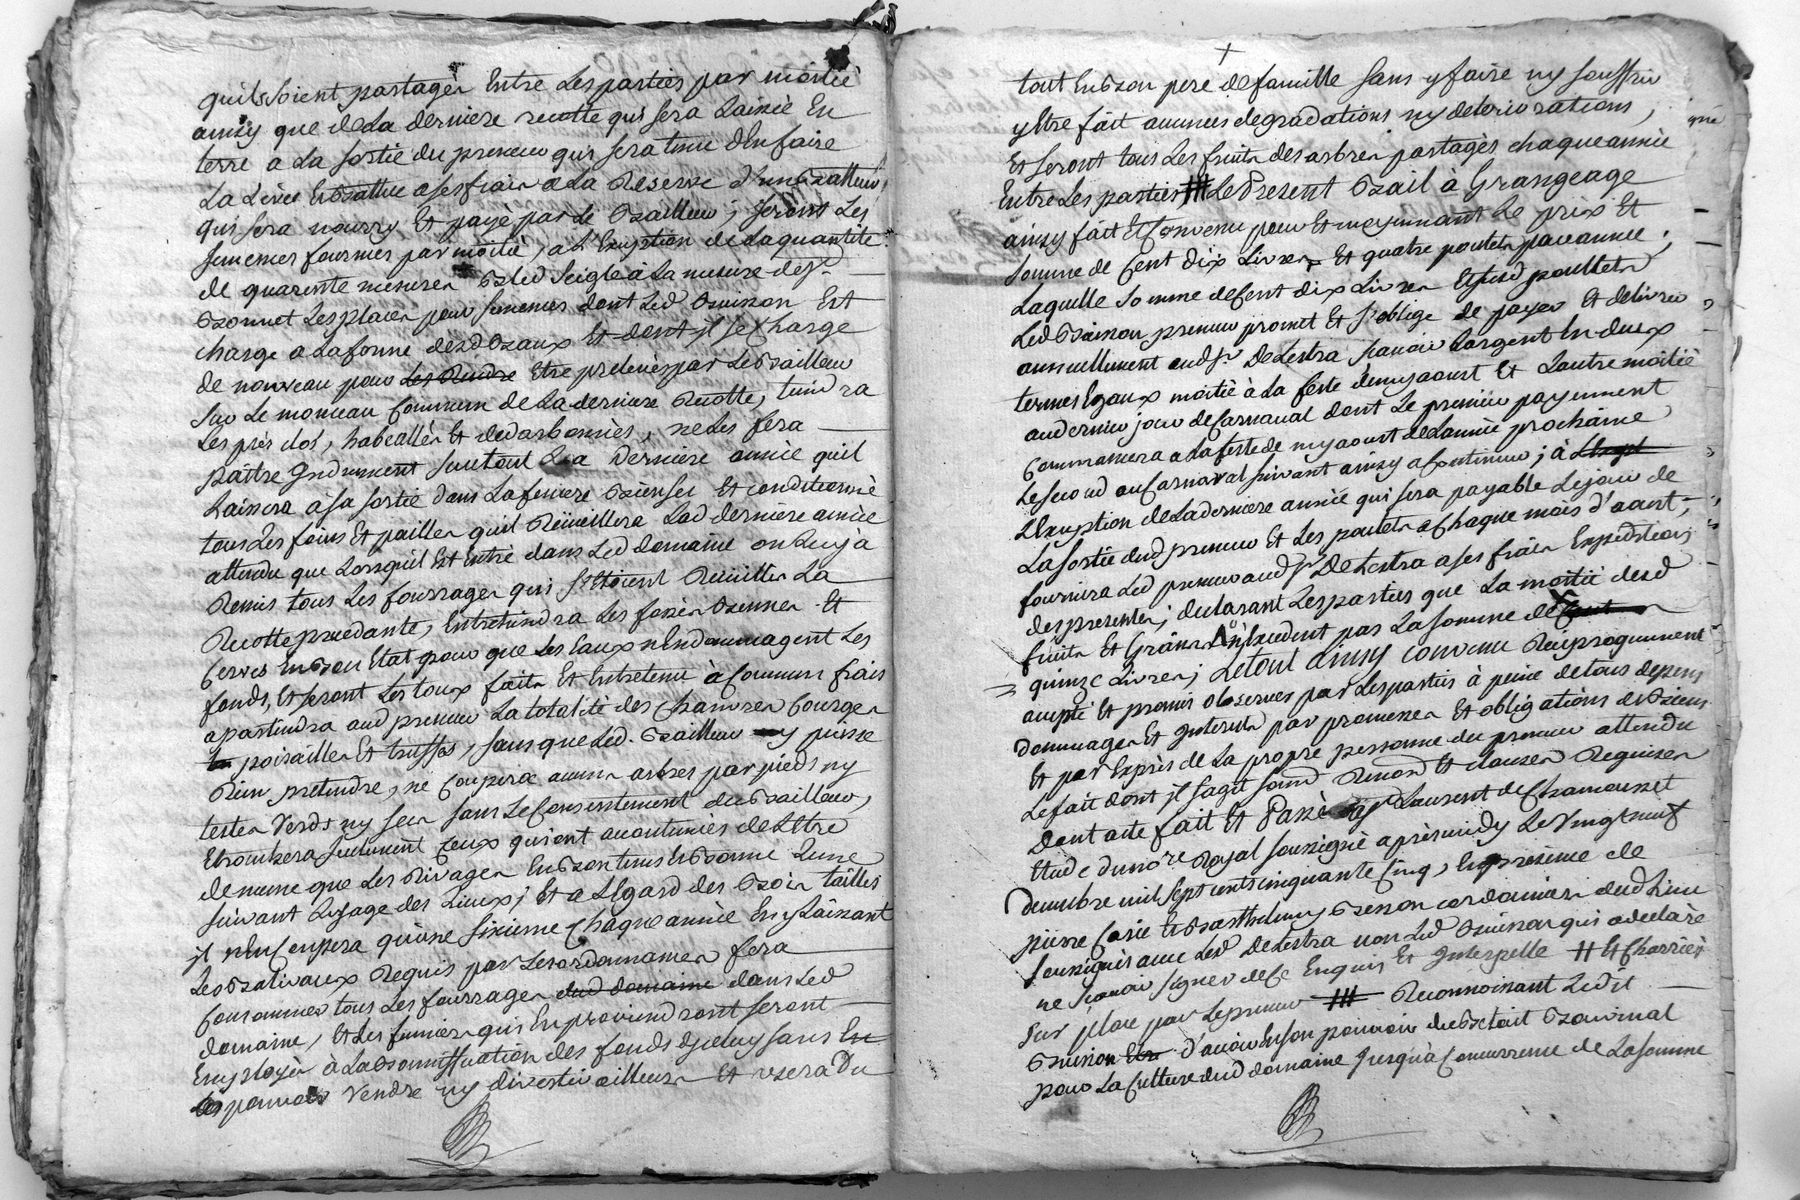 quils soient partagér Entre Les parties par moitié
ainsy que de La derniere recotte qui sera Laissée En
terre a La sortie du preneur qui sera tenu d'En faire
La Levée Et Battue a ses fraix a La Reserve d'un Batteur
qui sera nourry Et payé par Le Bailleur ; seront Les
semences fournies par moitié, a L'Exception de La quantité
de quarente mesures Bled seigle à La mesure de
Bonnet Les places pour semences dont Led Buisson Est
chargé a La forme desd Baux Et dont il se Charge
de nouveau pour Les Rendre Etre prelevés par Le Bailleur
sur Le monceau Commun de La derniere Recotte, tiendra
Les prés clos, habeallés Et dedarbonnés, ne Les fera
paître Induement surtout La Derniere année quil
Laissera à sa sortie dans La feniere Biensés Et conditionné
tous Les foins Et pailles quil Reüeillera Lad derniere année
attendu que Lorsquil Est Entré dans Led domaine on Luy a
Remis tous Les fourrages qui s'Etoient Reüillis La
Recotte precedante, Entretiendra Les fossés Biennes Et
serves En Bon Etat pour que Les Eaux n'Endommagent Les
fonds, Et seront Les toux faits Et Entretenu à Commun frais
apartiendra aud preneur La totalité des Chanvres Courges
poisailles Et truffes, sans que Led. Bailleur ny puisse
Rien pretendre, ne Coupera aucuns arbres par pieds ny
testes Verds ny secs sans Le Consentement du Bailleur,
Etronchera seulement Ceux qui ont accoutumés de L'Etre
de meme que Les Rivages En Bon tems Et Bonne Lune
suivant Lusage des Lieux ; Et a L'Egard des Bois taillés
il n'En Coupera qu'une sixieme Chaque année En y Laissant
Les Balivaux Requis par Les ordonnances fera
Consommer tous Les fourrages dud domaine dans Led
domaine, Et Les fumiers qui En proviendront seront
Employés à La Bonniffication des fonds d'jceluy sans En
pouvoir Vendre ny divertir ailleurs Et usera Du
tout En Bon pere de famille sans y faire ny souffrir
y Etre fait aucunes degradations ny deteriorations,
Et seront tous Les fruits des arbres partagés chaque année
Entre Les parties # Le Present Bail à Grangeage
ainsy fait Et Convenu pour Et moyennant Le prix Et
somme de Cent Dix Livres Et quatre poulets par année ;
Laquelle somme de Cent dix Livres Et lesd poullets
Led Buisson preneur promet Et s'oblige de payer Et delivrer
annuellement aud Sr De Lestra scavoir Largent En deux
termes Egaux moitié à La feste demy aoust Et Lautre moitié
au dernier jour de Carnaval dont Le premier payement
Commancera a La feste de my aoust de Lannée prochaine
Le second au Carnaval suivant ainsy a Continuer ; à
L'Exception de La derniere année qui sera payable Le jour de
La sortie dud preneur Et Les poulets a Chaque mois d'aoust ;
fournira Led preneur aud Sr De Lestra a ses frais Expedition
des presentes ; declarant Les parties que La moitié desd
fruits Et Grains n'Excedent pas La somme de
quinze Livres ; Le tout ainsy convenu Reciproquement
accepté Et promis observer par Les parties à peine de tous depens
dommages Et Interests par promesses Et obligations de Biens
Et par Exprès de La propre personne du preneur attendu
Le fait dont il s'agit soumis Renon Et clauses Requises
Dont acte fait Et Passé à St Laurent de Chamousset
Etude du no.re Royal soussigné après midy Le Vingt neuf
Decembre mil sept cents cinquante Cinq, En presence de
pierre Carie Et Barthelemy Besson cordonniers dud Lieu
soussignés avec Led De Lestra non Led Buisson qui a declaré
ne scavoir signer de Ce Enquis Et Interpellé # Et Charriés
sur place par Le preneur # Reconnoissant Ledit
Buisson d'avoir En son pouvoir du Betail Bouvinal
pour La Culture dud domaine Jusqu'à Concurrence de La somme